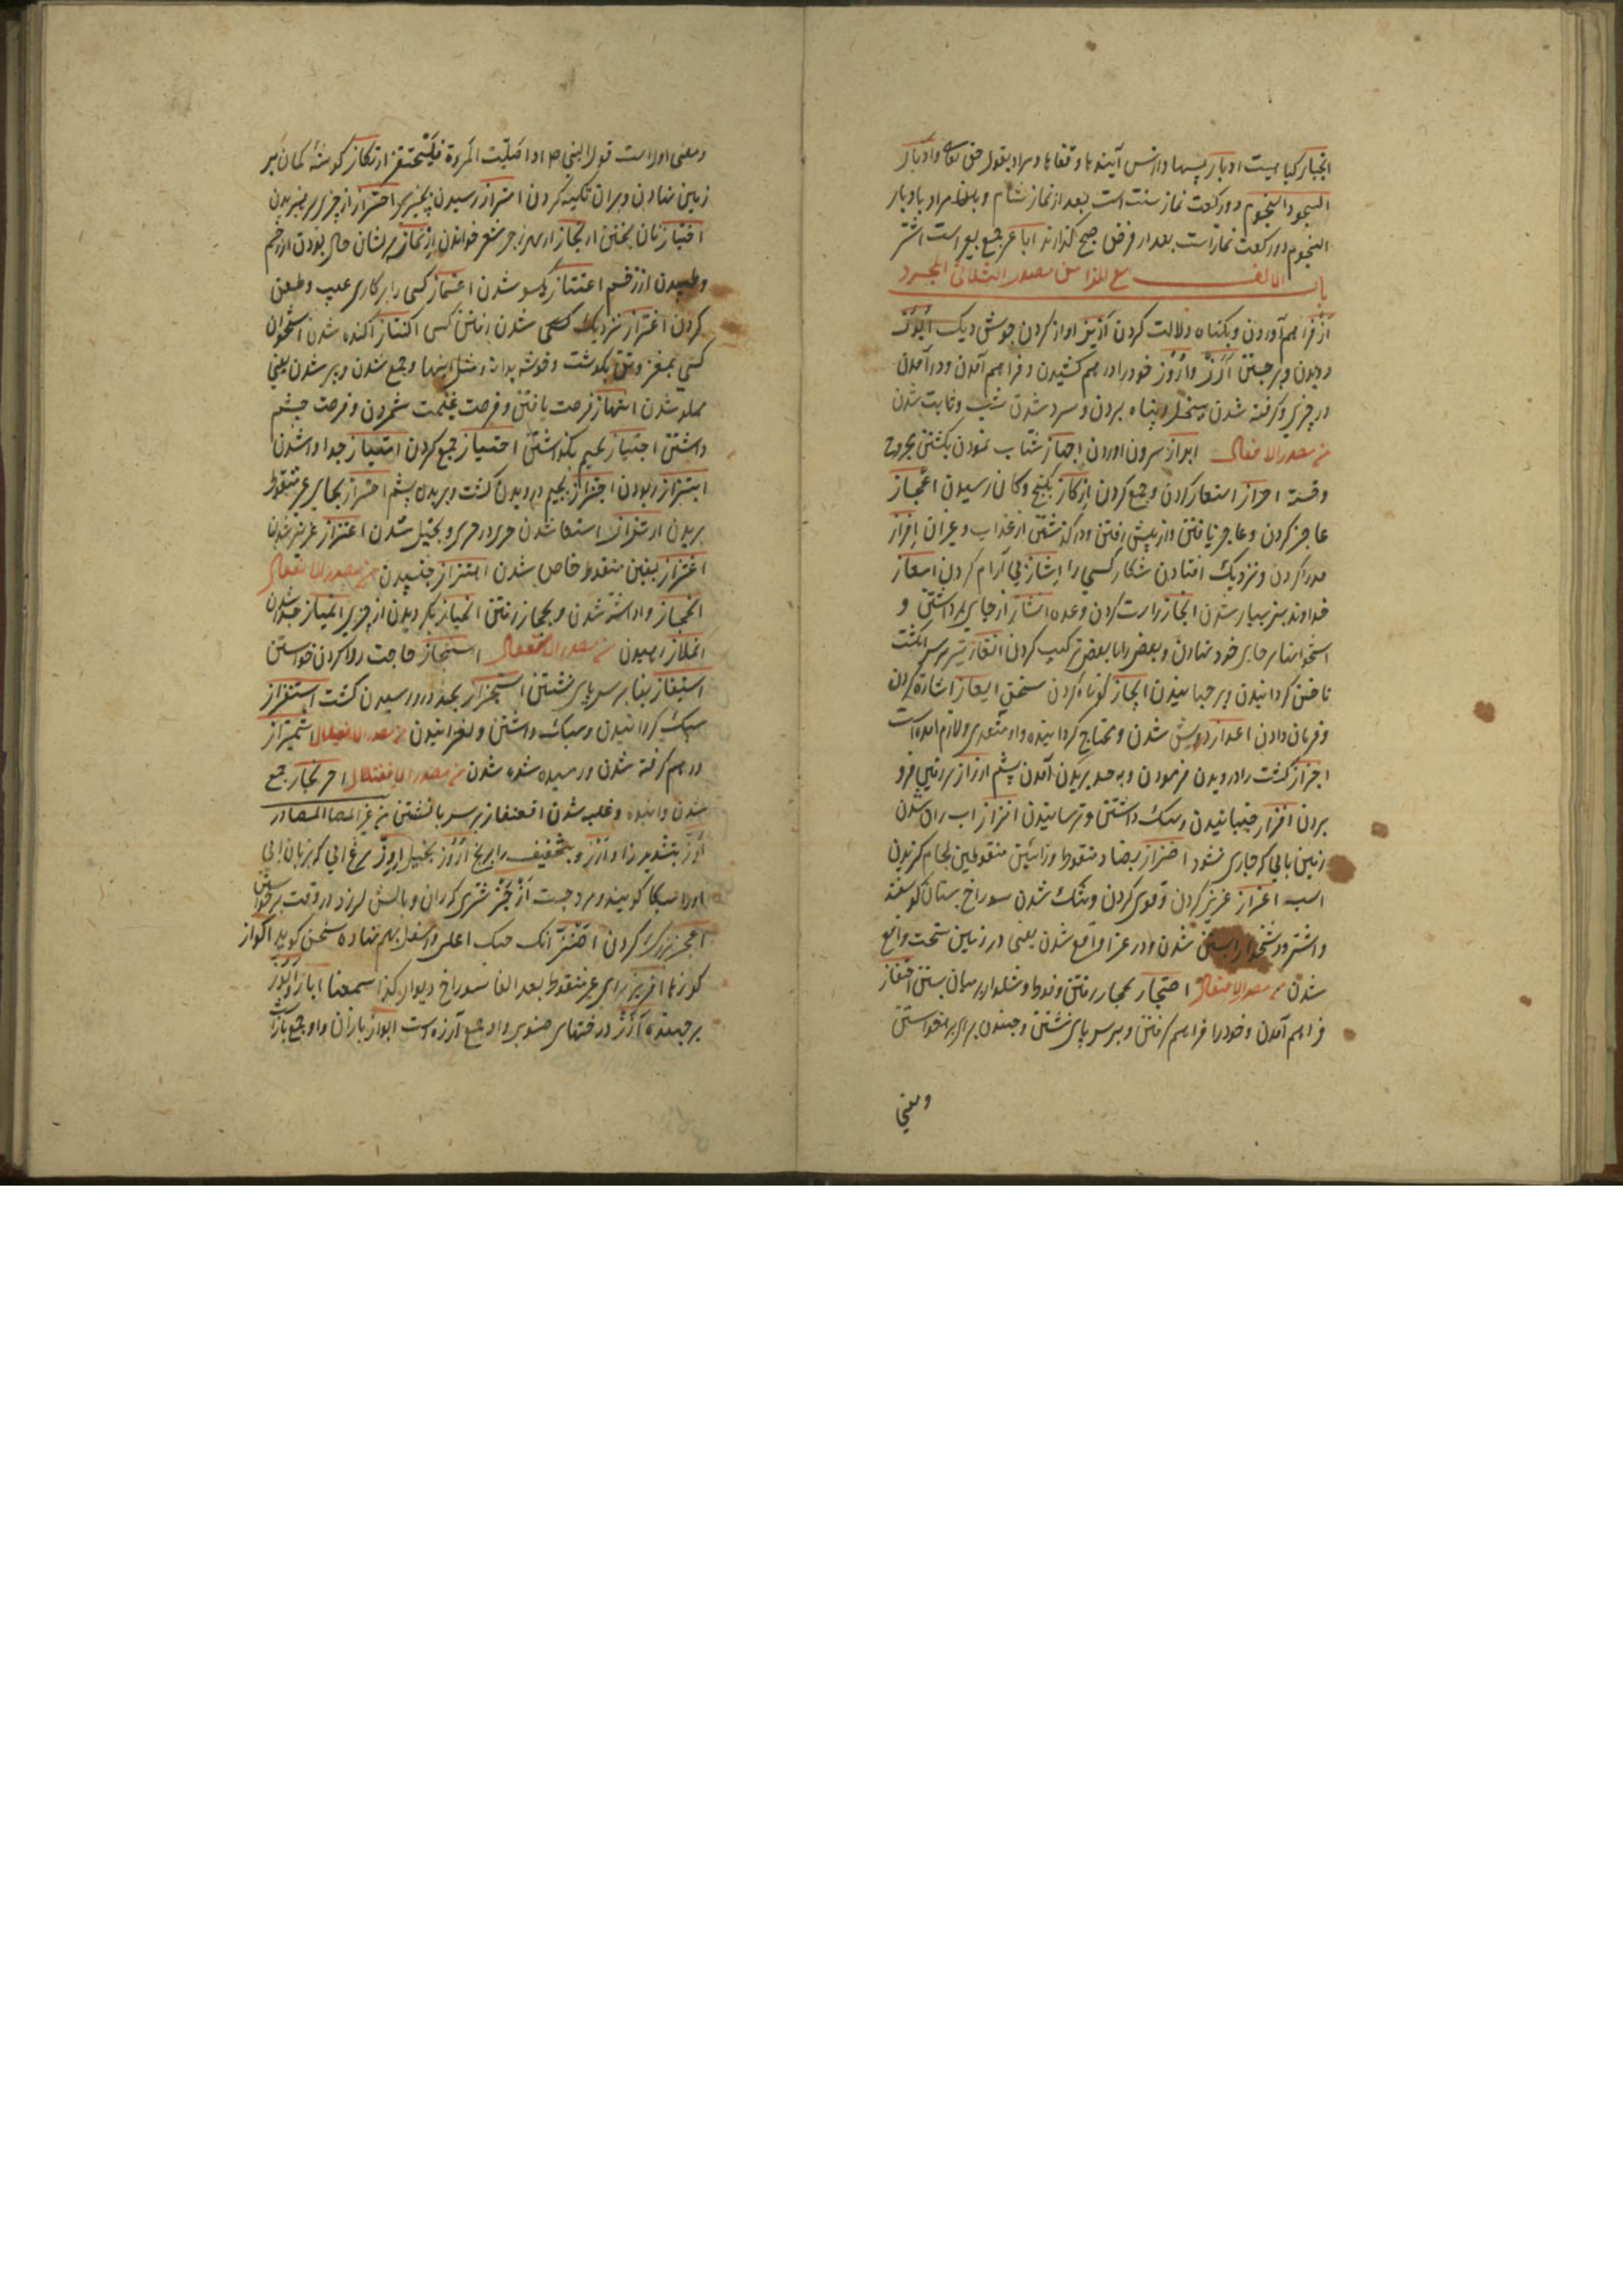 انجبار کیا هیست ادبار پسها و از پس آیندها و قفاها و مراد بقول حق تعالی و ادبار
السجود و النجوم دو رکعت نماز سنت است بعد از نماز شام و مراد بادبار
النجوم دو رکعت نماز است بعد از فرض صبح گذارند اباعر جمع بعیر است اشتر
باب الالف مع الزا من مصدر الثلاثی المجرد
از فراهم آوردن و بگناه دلالت کردن ازیز اواز کردن جوش دیک
دویدن و برجستن ارز و اروز خود را درهم کشیدن و فراهم آمدن و درآمدن
در چیزی و گرفته شدن و پناه بردن و سرد شدن شب و ثابت شدن
من مصدر الافعال ابراز بیرون اوردن اجهاز شتاب نمودن بکشتن مجروح
و خسته احراز استوار کردن و جمع کردن ارکاز بگنج و کان رسیدن اعجاز
عاجز کردن و عاجز یافتن و از پیش رفتن و درگذشتن از عذاب و غیر آن افراز
جدا کردن و نزدیک افتادن شکار کسی را اشاز بی آرام کردن امعاز
خداوند بز بسیار شدن انجاز راست کردن وعده انشاز از جای برداشتن و
استخوانها بر جای خود نهادن و بعض را با بعض ترکیب کردن انفاز تیر بر سر انگشت
ناخن گردانیدن و برجهانیدن ایجاز کوتاه کردن سخن ایعاز اشاره کردن
و فرمان دادن اعواز درویش شدن و محتاج گردانیدن و او متعدی و لازم امده است
اجزاز کشت را درویدن فرمودن و بحد بریدن آمدن پشم ارزاز بر زمین فرو
بردن افزاز جنبانیدن و سبک داشتن و ترسانیدن انزاز اب ران شدن
زمین بابی که جاری نشود اضزاز بضاد منقوط و زائین منقوطین لجام گزیدن
اسب اعزاز عزیز کردن و قوی کردن و تنک شدن سوراخ پستان گوسفند
و اشتر شدن و در عزا واقع شدن یعنی در زمین سخت واقع
شدن من مصدر الافتعال احتجاز بحجاز رفتن و فوطه و شلوار بر میان بستن احتفاز
فراهم آمدن و خود را فراهم گرفتن و بر سر پای نشستن و جنبیدن برای برخواستن
و معنی
و معنی اول است قول النبی ص اذا صلیت المرءة فلتحتفز ارتکاز گوشه کمان بر
زمین نهادن و بر آن تکیه کردن رسیدن بچیزی احتراز از چیزی پرهیزیدن
اختباز نان پختن ارتجاز از بحر رجز شعر خواندن پریشان حال بودن از زخم
و طپیدن از زخم اعتناز یکسو شدن اغتماز کسی را بر کاری عیب و طعن
کردن اغتراز نزدیک شدن رفتن کسی اکتناز آکنده شدن استخوان
کسی بمغز و تن بگوشت و خوشه بدانه و مثل اینها و جمع شدن و پر شدن یعنی
مملو شدن انتهاز فرصت یافتن و فرصت غنیمت شمردن و فرصت چشم
داشتن اجتیاز بجیم بگذاشتن احتیاز جمع کردن امتیاز جدا واشدن
ابتزاز ربودن اجتزاز بجیم درویدن کشت و بریدن پشم احتزاز بحای غیر منقوط
بریدن ارتزاز استوار شدن چیزی در چیزی و بخیل شدن اعتزاز عزیز شدن
اغتزاز بغین منقوط خاص شدن اهتزاز جنبیدن من مصدر الانفعال
انحجاز واداشته شدن و بحجاز رفتن انحیاز بگردیدن از چیزی انمیاز جدا شدن
انملاز رهیدن من مصدر الاستفعال استنجاز حاجت روا کردن خواستن
استیفاز بفا بر سر پای نشستن استجزاز بحد درو رسیدن کشت استفزاز
سبک گردانیدن و سبک داشتن و لغزانیدن من مصدر الافعلال اشمئزاز
درهم گرفته شدن و رمیده شدن من مصدر الافعنلال احرنجاز جمع
شدن و انبوه و غلبه شدن اقعنفاز بر سر پا نشستن من غیر المصادر
ارز بتشدید زا و ارز و بتخفیف را برنج اروز بخیل اوز مرغ ابی که بزبان ابی
او را بط کویند و مرد
اعجز بزرگ کردن اضز انک حنک اعلی و اسفل بهم نهاده سخن گوید اکواز
کوزها افریز برای غیر منقوط بعد الفا سوراخ دیوار کذا سمعنا اباز
برجهنده ارز درختهای صنوبر و او جمع ارزه است ابواز بازان و او جمع باز است